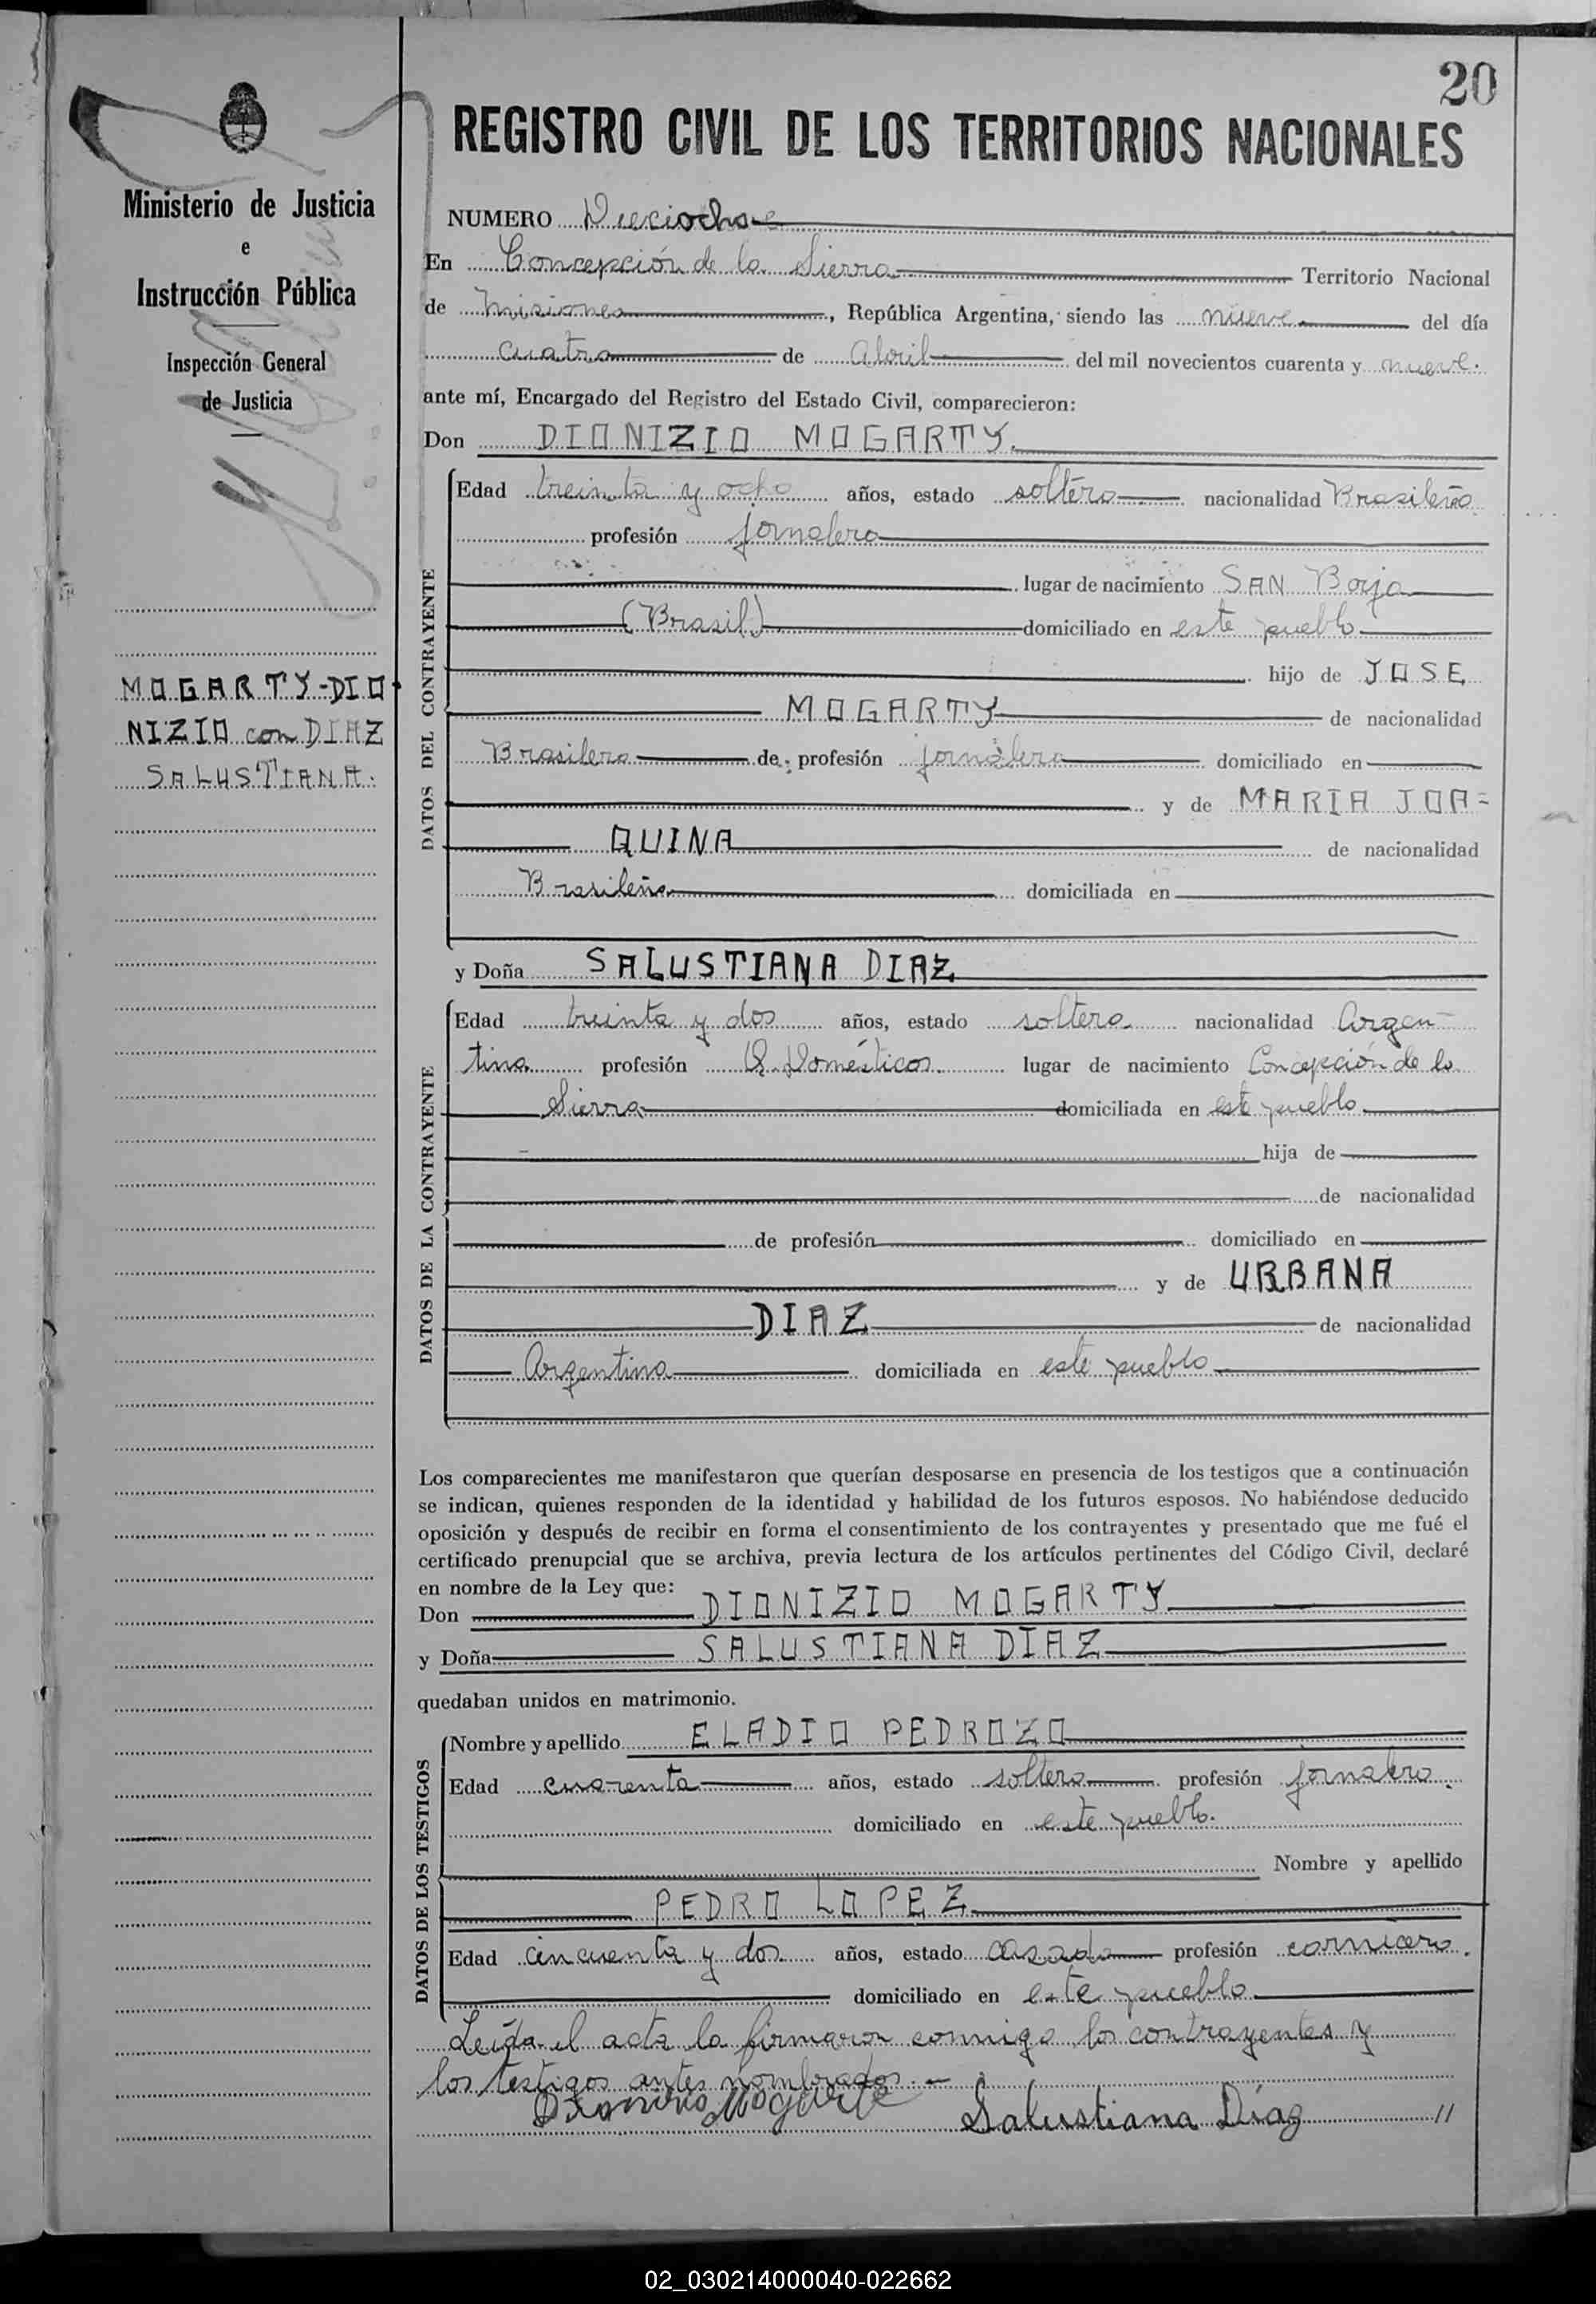 20
REGISTRO CIVIL DE LOS TERRITORIOS NACIONALES
Ministerio de Justicia
e
Instrucción Pública
Inspección General
de Justicia
MOGARTY-DIO
NIZIO con DIAZ
SALUSTIANA.
NUMERO Dieciocho
En Concepción de la Sierra Territorio Nacional
de Misiones, República Argentina, siendo las nueve del día
cuatro de Abril del mil novecientos cuarenta y nueve.
ante mí, Encargado del Registro del Estado Civil, comparecieron:
Don DIONIZIO MOGARTY.
DATOS DEL CONTRAYENTE
Edad treinta y ocho años, estado soltero nacionalidad Brasileño
profesión jornalero
lugar de nacimiento SAN Borja
(Brasil) domiciliado en este pueblo
hijo de JOSE
MOGARTY de nacionalidad
Brasilero de profesión jornalero domiciliado en
y de MARIA JOA=
QUINA de nacionalidad
Brasileña domiciliada en
y Doña SALUSTIANA DIAZ
DATOS DE LA CONTRAYENTE
Edad treinta y dos años, estado soltera nacionalidad Argen-
tina profesión Q. Domésticos. lugar de nacimiento Concepción de la
Sierra domiciliada en este pueblo
hija de
de nacionalidad
de profesión domiciliado en
y de URBANA
DIAZ de nacionalidad
Argentina domiciliada en este pueblo
Los comparecientes me manifestaron que querían desposarse en presencia de los testigos que a continuación
se indican, quienes responden de la identidad y habilidad de los futuros esposos. No habiéndose deducido
oposición y después de recibir en forma el consentimiento de los contrayentes y presentado que me fué el
certificado prenupcial que se archiva, previa lectura de los artículos pertinentes del Código Civil, declaré
en nombre de la Ley que:
Don DIONIZIO MOGARTY
y Doña SALUSTIANA DIAZ
quedaban unidos en matrimonio.
DATOS DE LOS TESTIGOS
Nombre y apellido ELADIO PEDROZO
Edad cuarenta años, estado soltero profesión jornalero.
domiciliado en este pueblo.
Nombre y apellido
PEDRO LOPEZ
Edad cincuenta y dos años, estado casado profesión carnicero.
domiciliado en este pueblo
Leída el acta la firmaron conmigo los contrayentes y
los testigos antes nombrados.-
Dionizio Mogarte Salustiana Díaz //
02_030214000040-022662